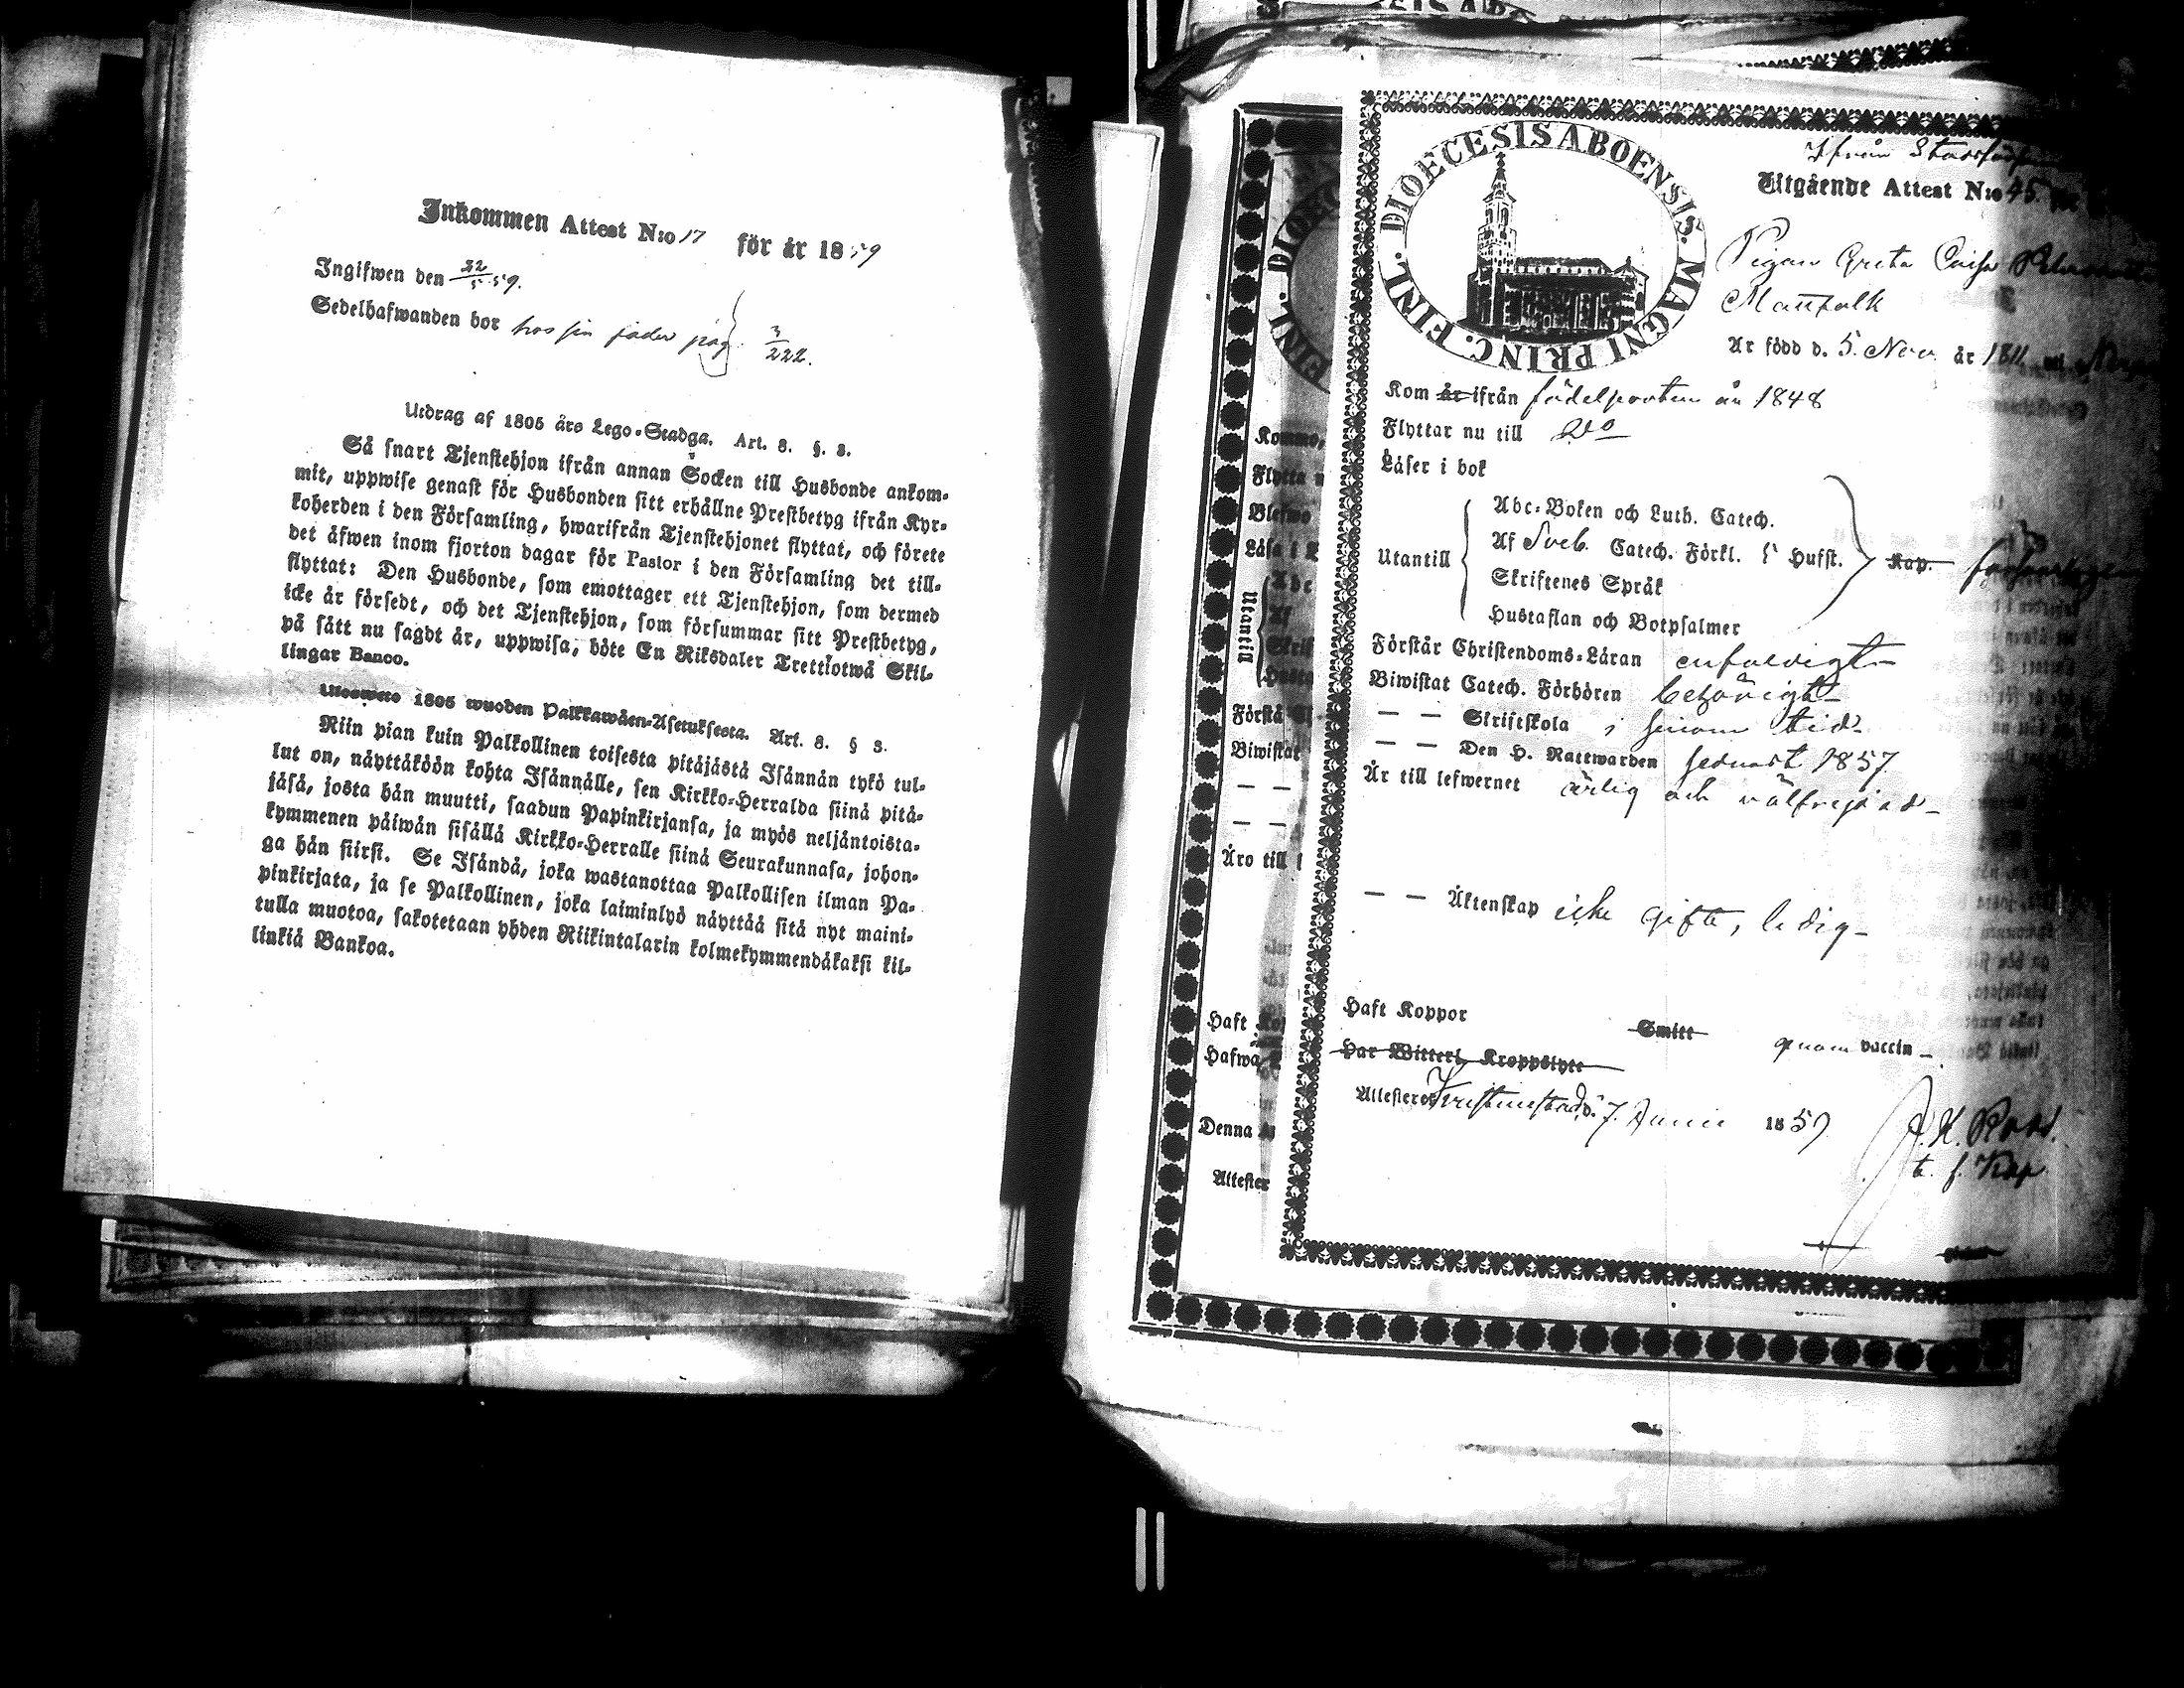 Inkommen Attest N:o 17 för år 1859
Ingifwen den 22/5 59.
Sedelhafwanden bor hos sin fader pag. 3/222.
Utdrag af 1805 års Lego-Stadga. Art. 8. §. 3.
Så snart Tjenstehjon ifrån annan Socken till Husbonde ankom-
mit, uppwise genast för Husbonden sitt erhållne Prestbetyg ifrån Kyr-
koherden i den Församling, hwarifrån Tjenstehjonet flyttat, och förete
det äfwen inom fjorton dagar för Pastor i den Församling det till-
flyttat: Den Husbonde, som emottager ett Tjenstehjon, som dermed
icke är försedt, och det Tjenstehjon, som försummar sitt Prestbetyg,
på sätt nu sagdt är, uppwisa, böte En Riksdaler Trettiotwå Skil-
lingar Banco.
1805 wuoden Palkkawäen-Asetuksesta. Art. 8. § 3.
Niin pian kuin Palkollinen toisesta pitäjästä Isännän tykö tul-
lut on, näyttäköön kohta Isännälle, sen Kirkko-Herralda siinä pitä-
jäsä, josta hän muutti, saadun Papinkirjansa, ja myös neljäntoista-
kymmenen päiwän sisällä Kirkko-Herralle siinä Seurakunnasa, johon-
ga hän siirsi. Se Isändä, joka wastanottaa Palkollisen ilman Pa-
pinkirjata, ja se Palkollinen, joka laiminlyö näyttää sitä nyt maini-
tulla muotoa, sakotetaan yhden Riikintalarin kolmekymmendäkaksi kil-
linkiä Bankoa.
DIOECESIS ABOENSIS. MAGNI PRINC. FINL.
Ifrån
Utgående Attest N:o 45
Pigan Greta Caisa
Mattfolk
Är född d. 5. Nov. år 1811
Kom är ifrån födelseorten år 1848
Flyttar nu till Do
Läser i bok
Utantill
Abc-Boken och Luth. Catech.
Af Sveb. Catech. Förkl. 5 Hufst. Kap.
Skriftenes Språk
Hustaflan och Botpsalmer
Förstår Christendoms-Läran enfaldigt
Biwistat Catech. Förhören behörigt
— — Skriftskola i sinom tid
— — Den H. Nattwarden senast 1857
Är till lefwernet ärlig och välfrejdad
— — Äktenskap icke gift, ledig
Haft Koppor Smitt genom vaccin
Har Witterl. Kroppslyte
Attesterer Kristinestad d. 7. Junii 1857
t. f. Kap
Kommo,
Flytta n
Blefwo
Läsa i b
Utantill
Abc
Af
Skrif
Husta
Förstå
Biwistat
— —
— —
Äro till l
Haft Kop
Hafwa
Denna
Attester